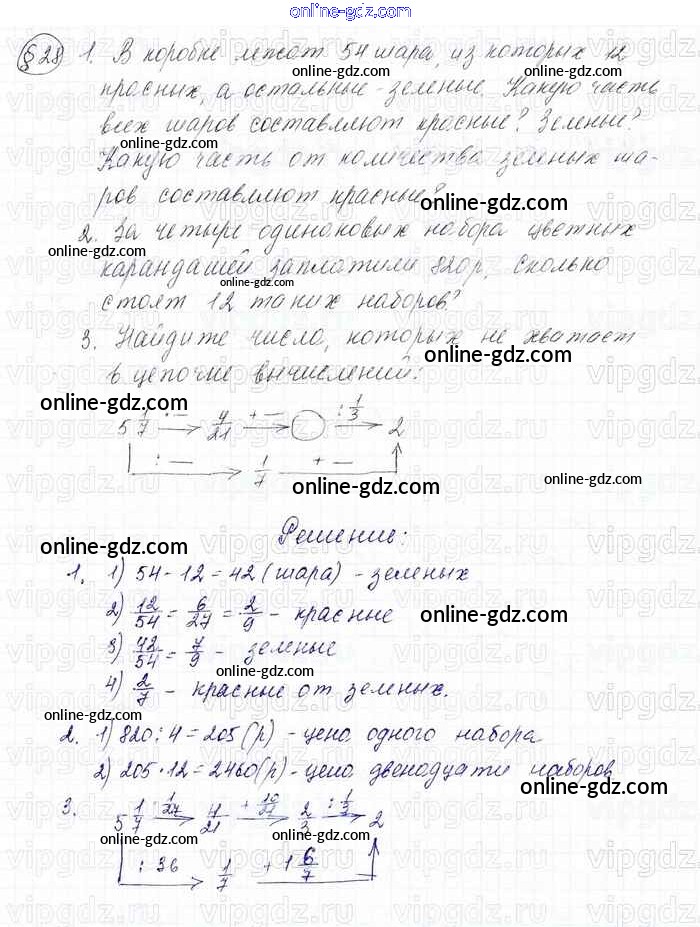 online-gdz.com
§28 1. В коробке лежат 54 шара, из которых 12
online-gdz.com
красных, а остальные - зеленые. Какую часть
online-gdz.com
всех шаров составляют красные? Зеленые?
Какую часть от количества зеленых ша-
ров составляют красные?
online-gdz.com
2. За четыре одинаковых набора цветных
online-gdz.com
карандашей заплатили 820 р, сколько
online-gdz.com
стоят 12 таких наборов?
3. Найдите числа, которых не хватает
online-gdz.com
в цепочке вычислений:
online-gdz.com
5 1/7 : — → 4/21 + — → ○ : 1/3 → 2
: — → 1/7 + —
online-gdz.com
online-gdz.com
Решение:
online-gdz.com
1. 1) 54 - 12 = 42 (шара) - зеленых
2) 12/54 = 6/27 = 2/9 - красные
online-gdz.com
3) 42/54 = 7/9 - зеленые
online-gdz.com
4) 2/7 - красные от зеленых.
online-gdz.com
2. 1) 820 : 4 = 205 (р) - цена одного набора
2) 205 · 12 = 2460 (р) - цена двенадцати наборов
online-gdz.com
online-gdz.com
3. 5 1/7 : 1/27 → 4/21 + 10/21 → 2/3 : 1/3 → 2
online-gdz.com
: 36 → 1/7 + 1 6/7